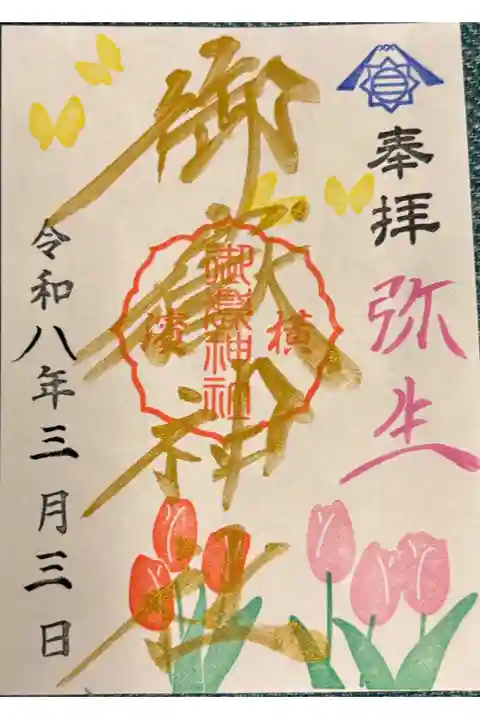 奉拝
弥生
御嶽神社
横
御嶽神社
濱
令和八年三月三日